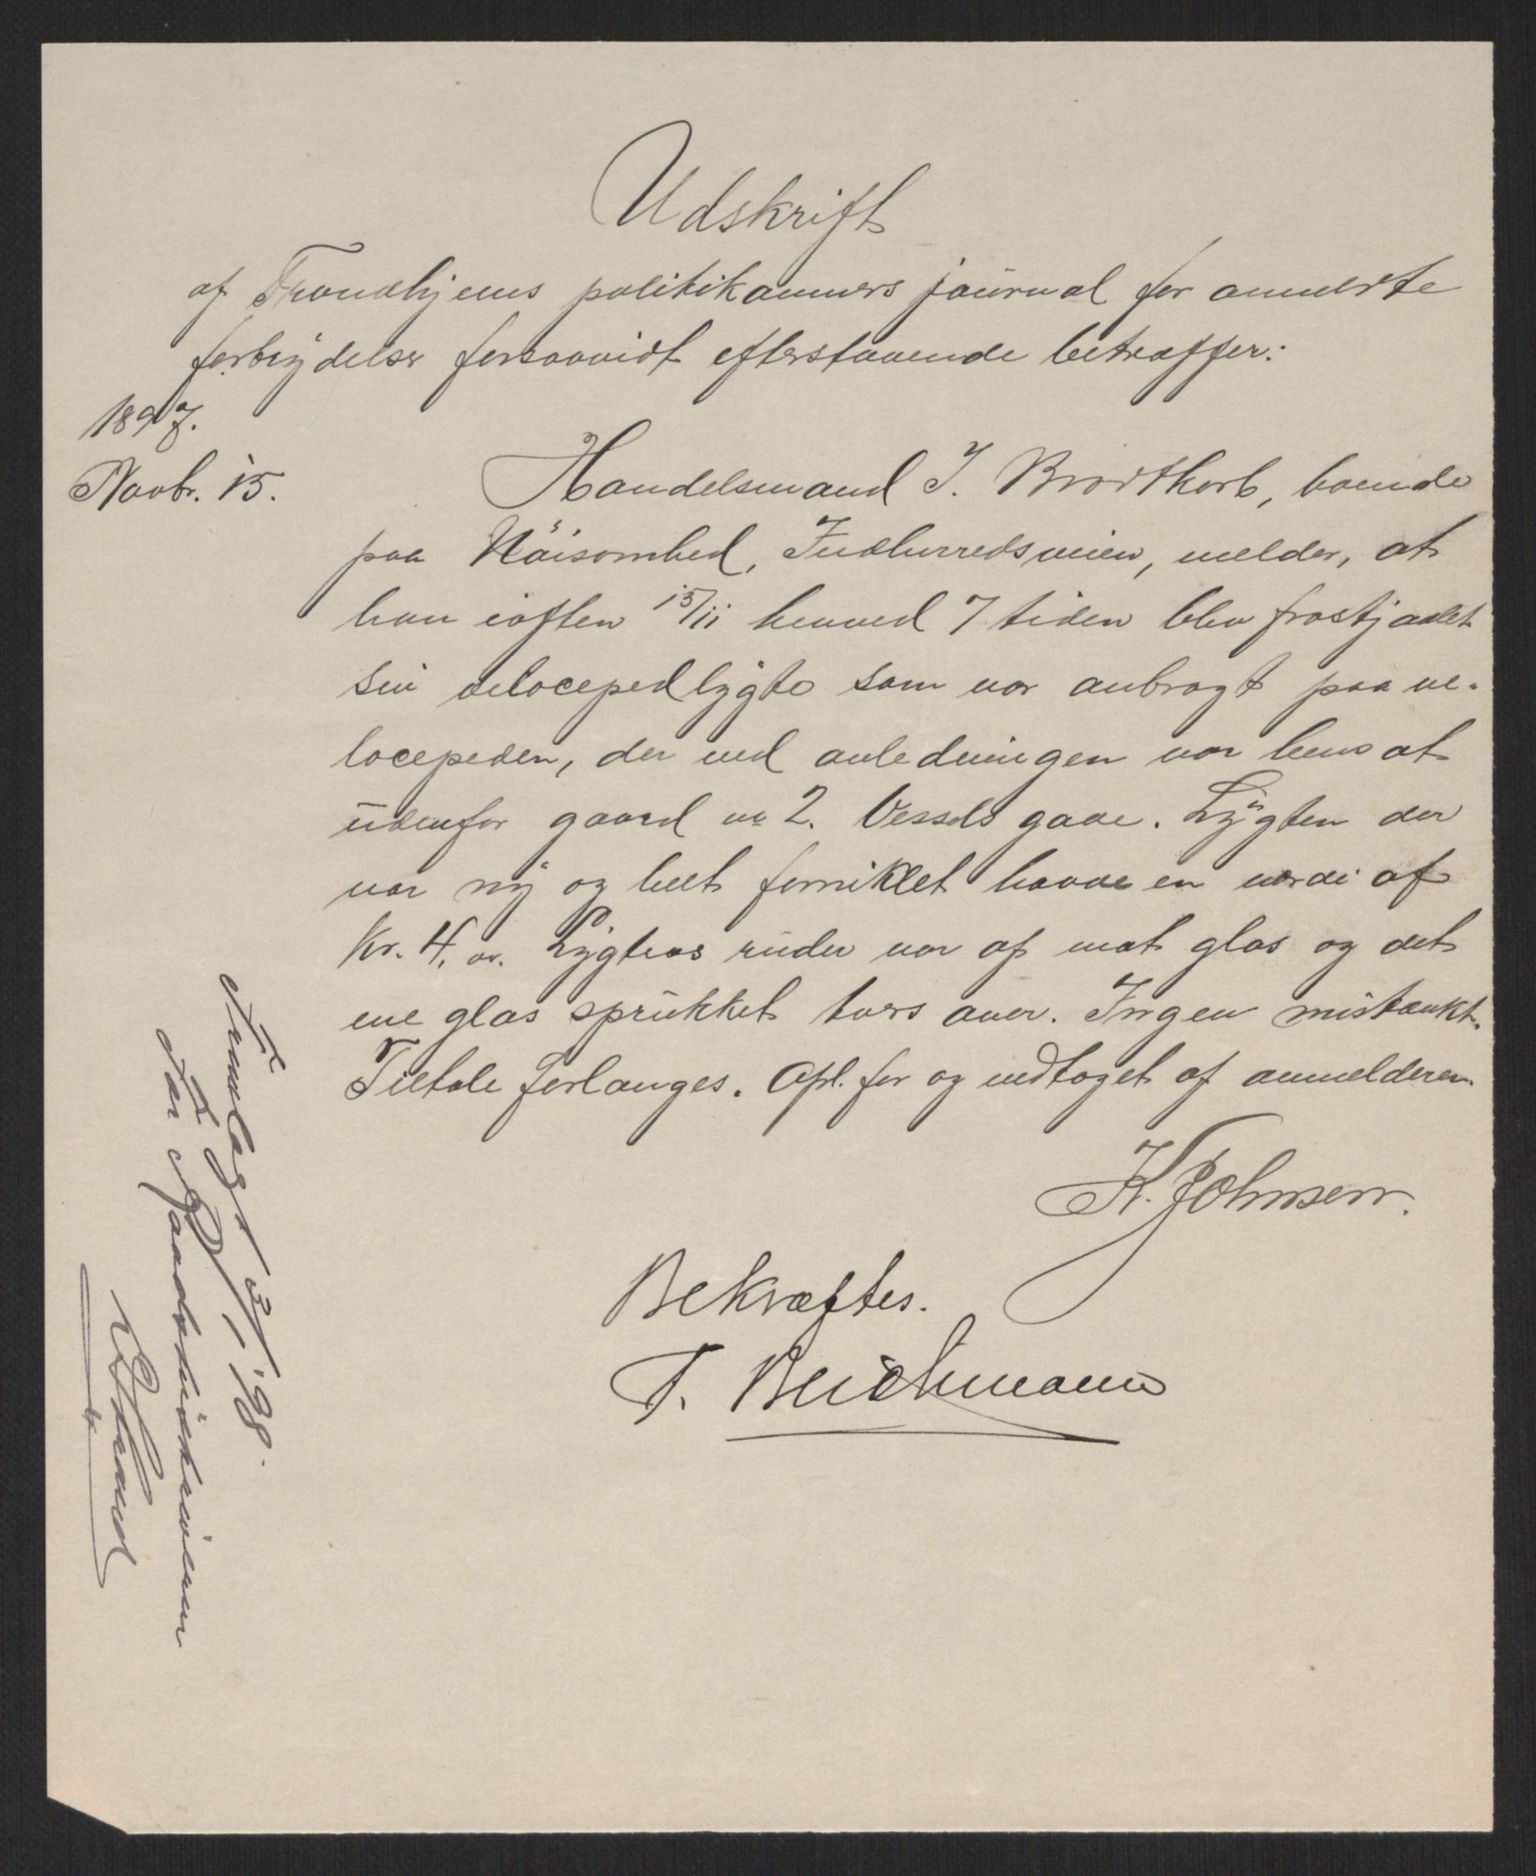 Udskrift
af Trondhjems politikammers journal for anmeldte
forbrydelser forsaavidt efterstaaende betræffer:
1897.
Novbr. 15.
Handelsmand I. Brodtkorb, boende
paa Nöisomhed, Indherredsveien, melder, at
han iaften 15/11 henved 7 tiden blev frastjaalet
sin velocipedlygte som var anbragt paa ve-
locepeden, der ved anledningen var hensat
udenfor gaard no 2. Vessels gade. Lygten der
var ny og helt forniklet havde en værdi af
Kr. 4, Lygtens ruder var af mat glas og det
ene glas sprukket tvers over. Ingen mistænkt.
Tiltale forlanges. Opl. for og vedtaget af anmelderen.
K. Johnsen.
Bekræftes.
T. Beichmann
Fremlagt 3/1 '98.